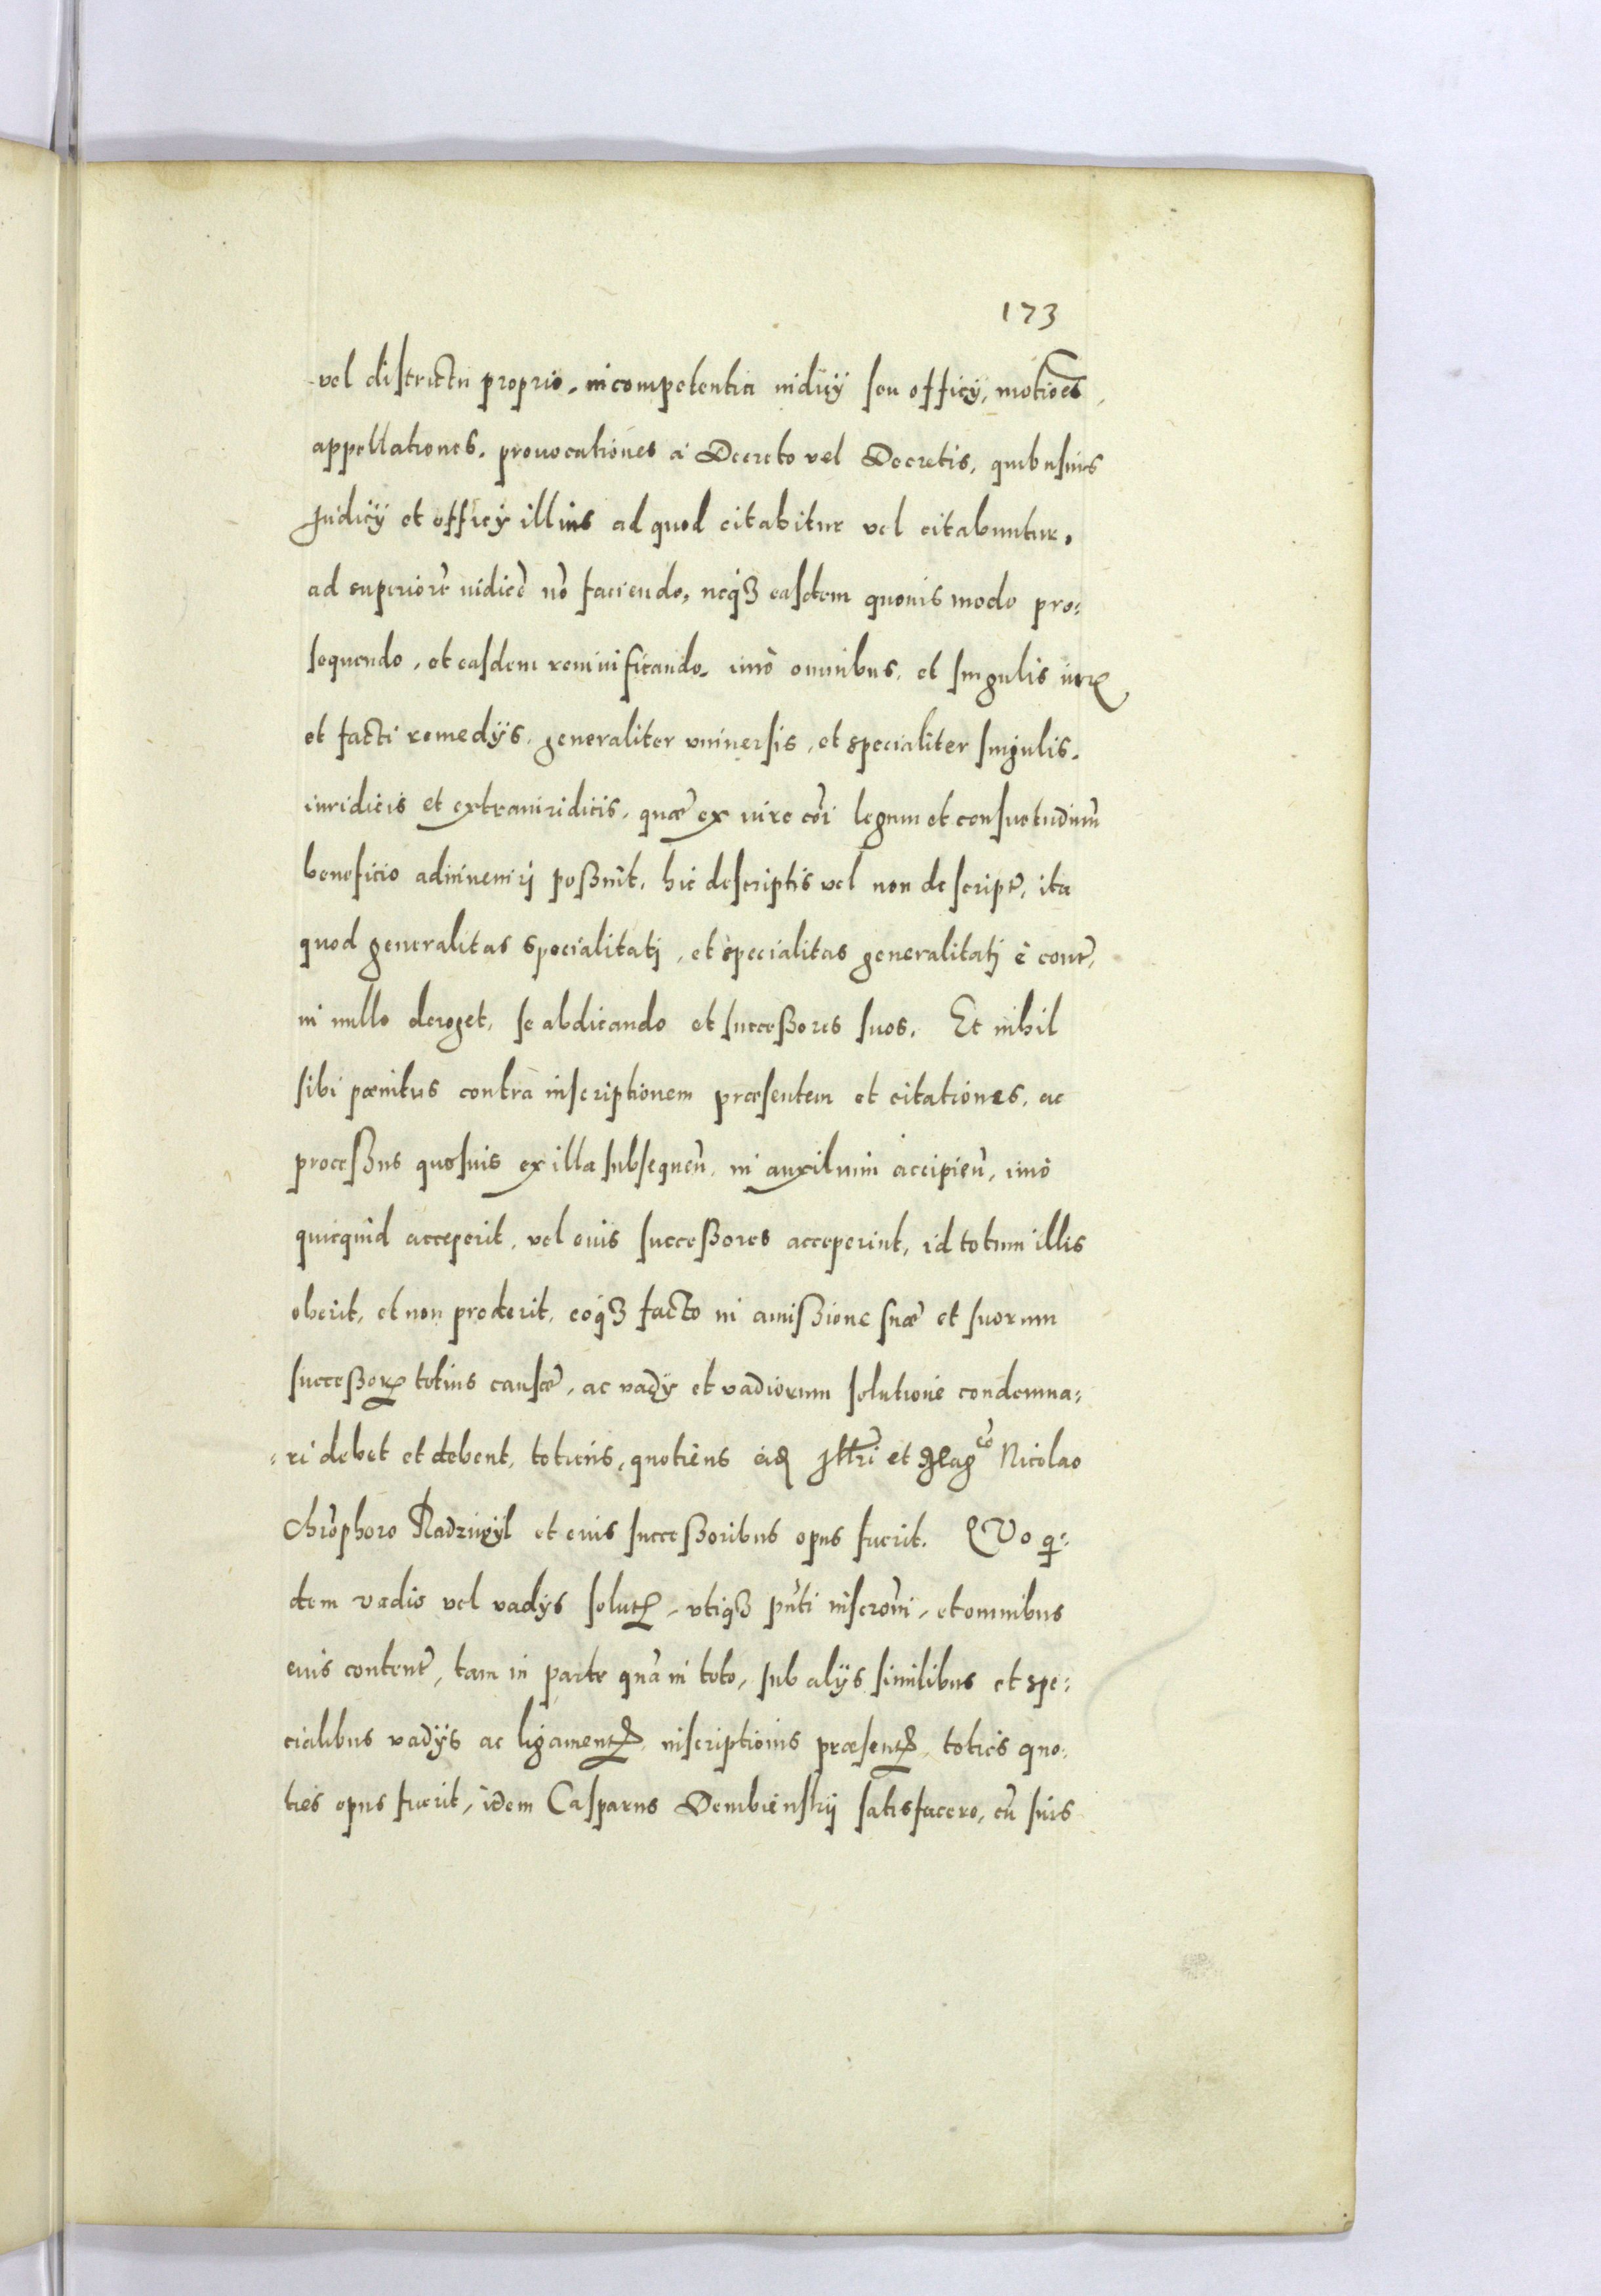 173
vel districtu proprio, incompetentia iudicÿ seu officÿ, motiões,
appellationes, prouocationes à Decreto vel Decretis, quibusuis
Judicÿ et officÿ illius ad quod citabitur vel citabuntur,
ad superiorẽ iudicẽ nõ faciendo, neqꝫ easdem quouis modo pro:
sequendo, et easdem reuiuificando, imò omnibus, et singulis iurꝭ
et facti remedÿs, generaliter vniuersis, et specialiter singulis,
iuridicis et extraiuridicis, quæ ex iure cõi legum et consuetudinũ
beneficio adinuenirj poßunt, hic descriptis vel non descript, ita
quod generalitas specialitatj, et specialitas generalitatj è contr̃,
in nullo deroget, se abdicando et succeßores suos. Et nihil
sibi pœnitus contra inscriptionem præsentem et citationes, ac
proceßus quosuis ex illa subsequeñ, in auxilium accipieñ, imò
quicquid acceperit, vel eius succeßores acceperint, id totum illis
oberit, et non proderit, eoqꝫ facto in amißione suæ et suorum
succeßorꝝ totius causæ, ac vadÿ et vadiorum solutione condemna:
:ri debet et debent, totiens, quotiens eidꝫ Jllr̃i et Magᶜᵒ Nicolao
Chrõphoro Radziwÿl et eius succeßoribus opus fuerit. QVo qi:
dem vadio vel vadÿs solutꝭ, vtiqꝫ pñti inscrõni, et omnibus
eius content̃, tam in parte quã in toto, sub alÿs similibus et spe:
cialibus vadÿs ac ligamentꝭ, inscriptionis præsentꝭ, toties quo:
ties opus fuerit, idem Casparus Dembienskij satisfacere, cũ suis